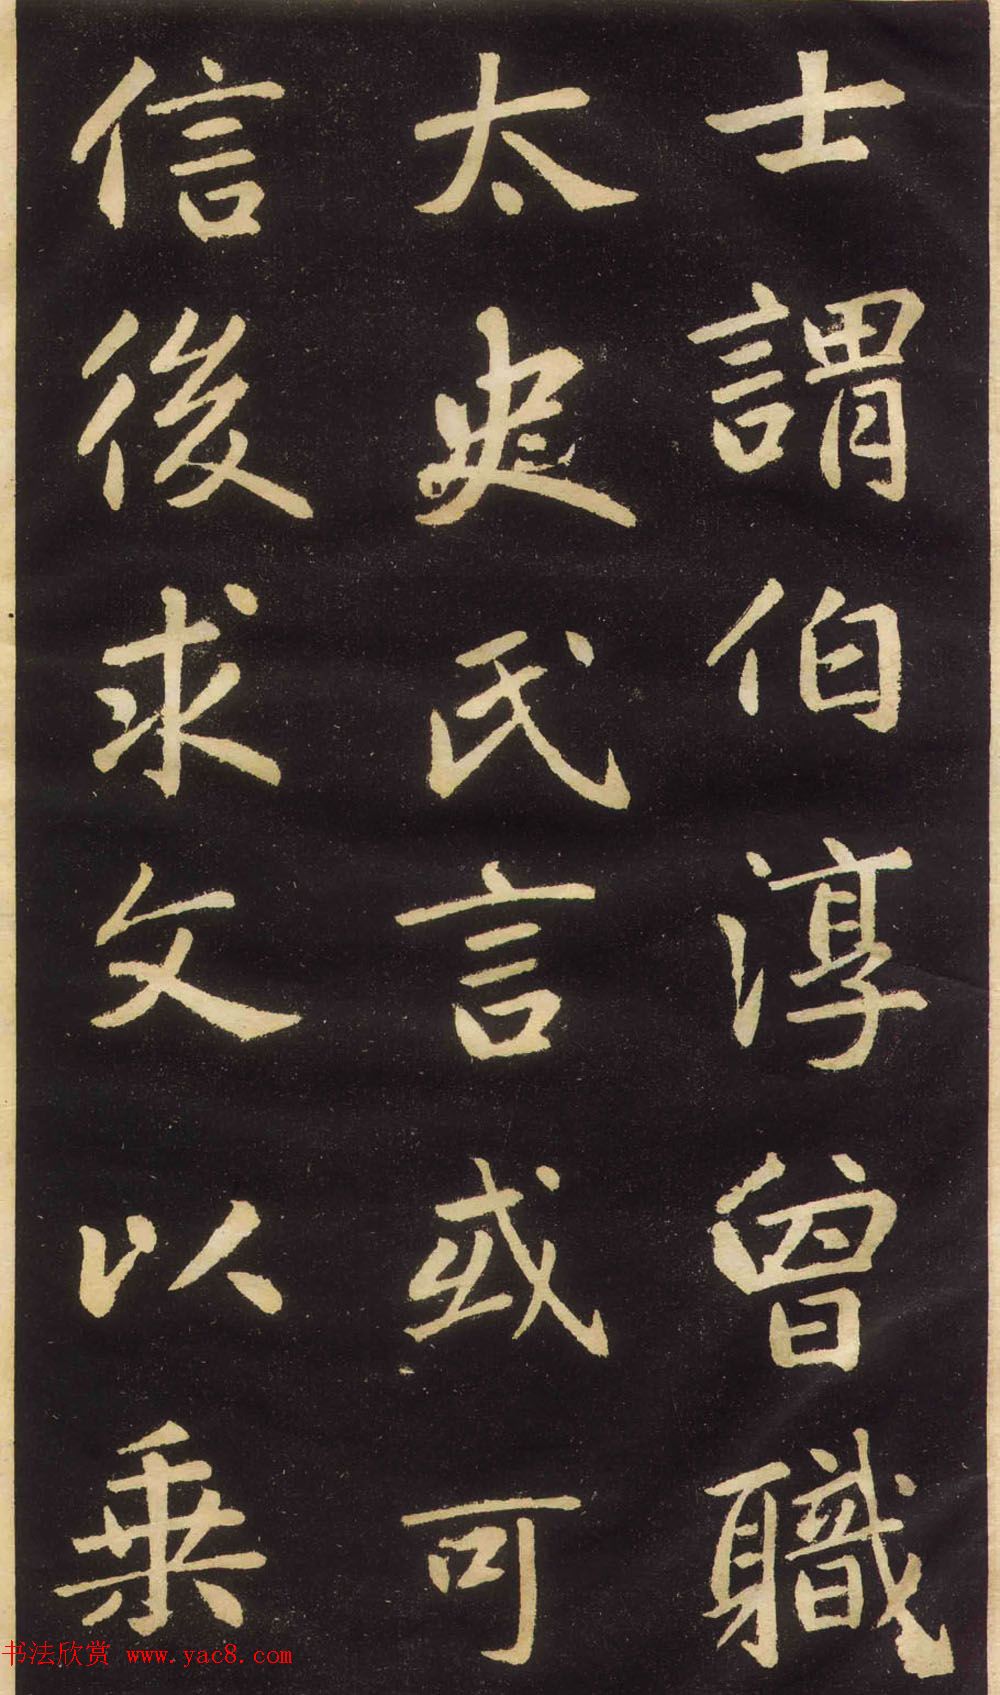 士謂伯淳曾職
太史氏言或可
信後求文以乗
书法欣赏 www.yac8.com